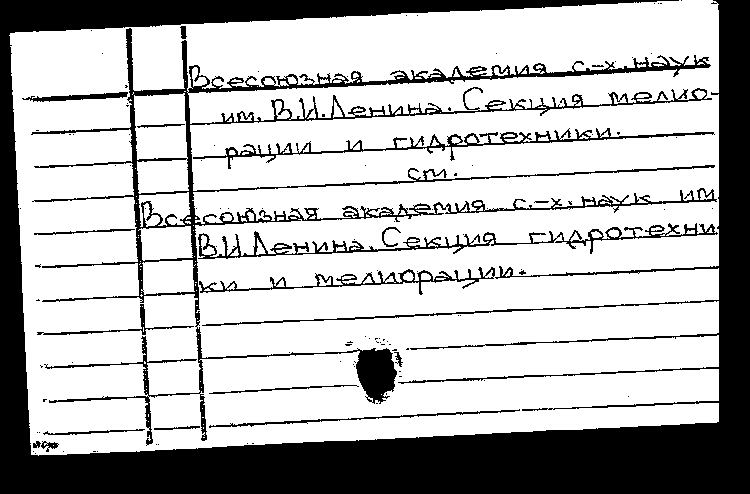 Всесоюзная академия с.-х. наук
им. В.И.Ленина. Секция мелио-
рации и гидротехники.
см.
Всесоюзная академия с.-х. наук им
В.И.Ленина. Секция гидротехни-
ки и мелиорации.